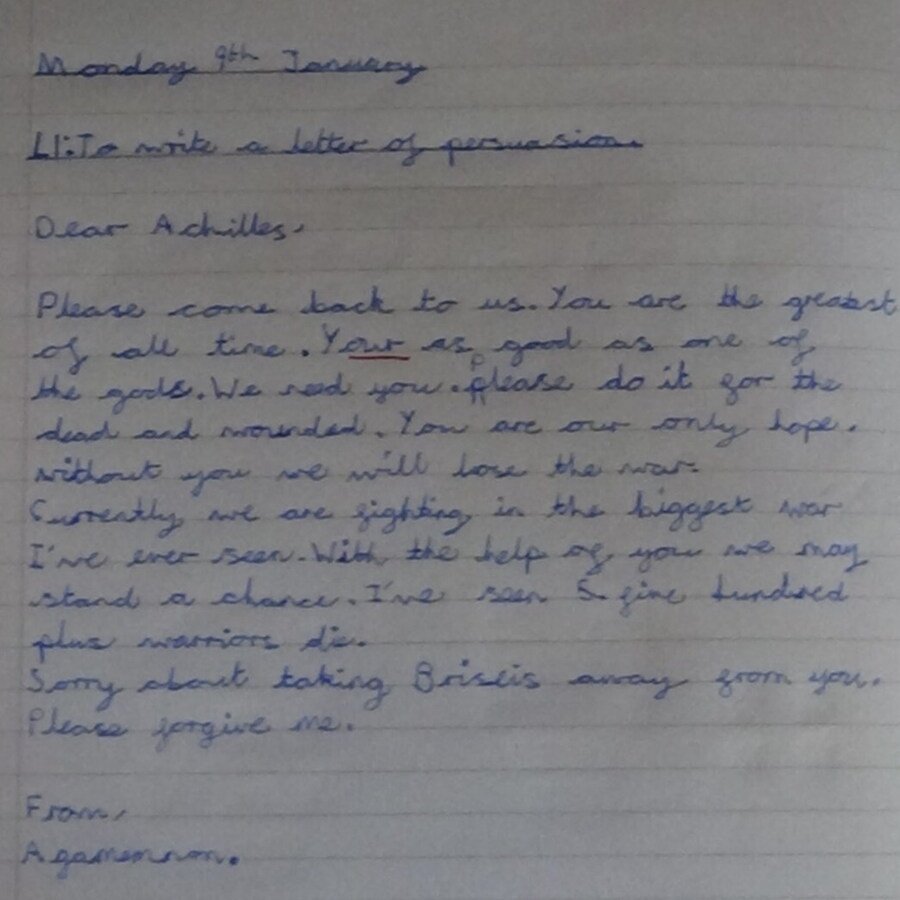 Monday 9th January
LI: To write a letter of persuasion.
Dear Achilles,
Please come back to us. You are the greatest
of all time. Your as good as one of
the gods. We need you. please do it for the
dead and wounded. You are our only hope.
without you we will lose the war.
Currently we are fighting in the biggest war
I've ever seen. With the help of you we may
stand a chance. I've seen 5 five hundred
plus warriors die.
Sorry about taking Briseis away from you.
Please forgive me.
From,
Agamemnon.